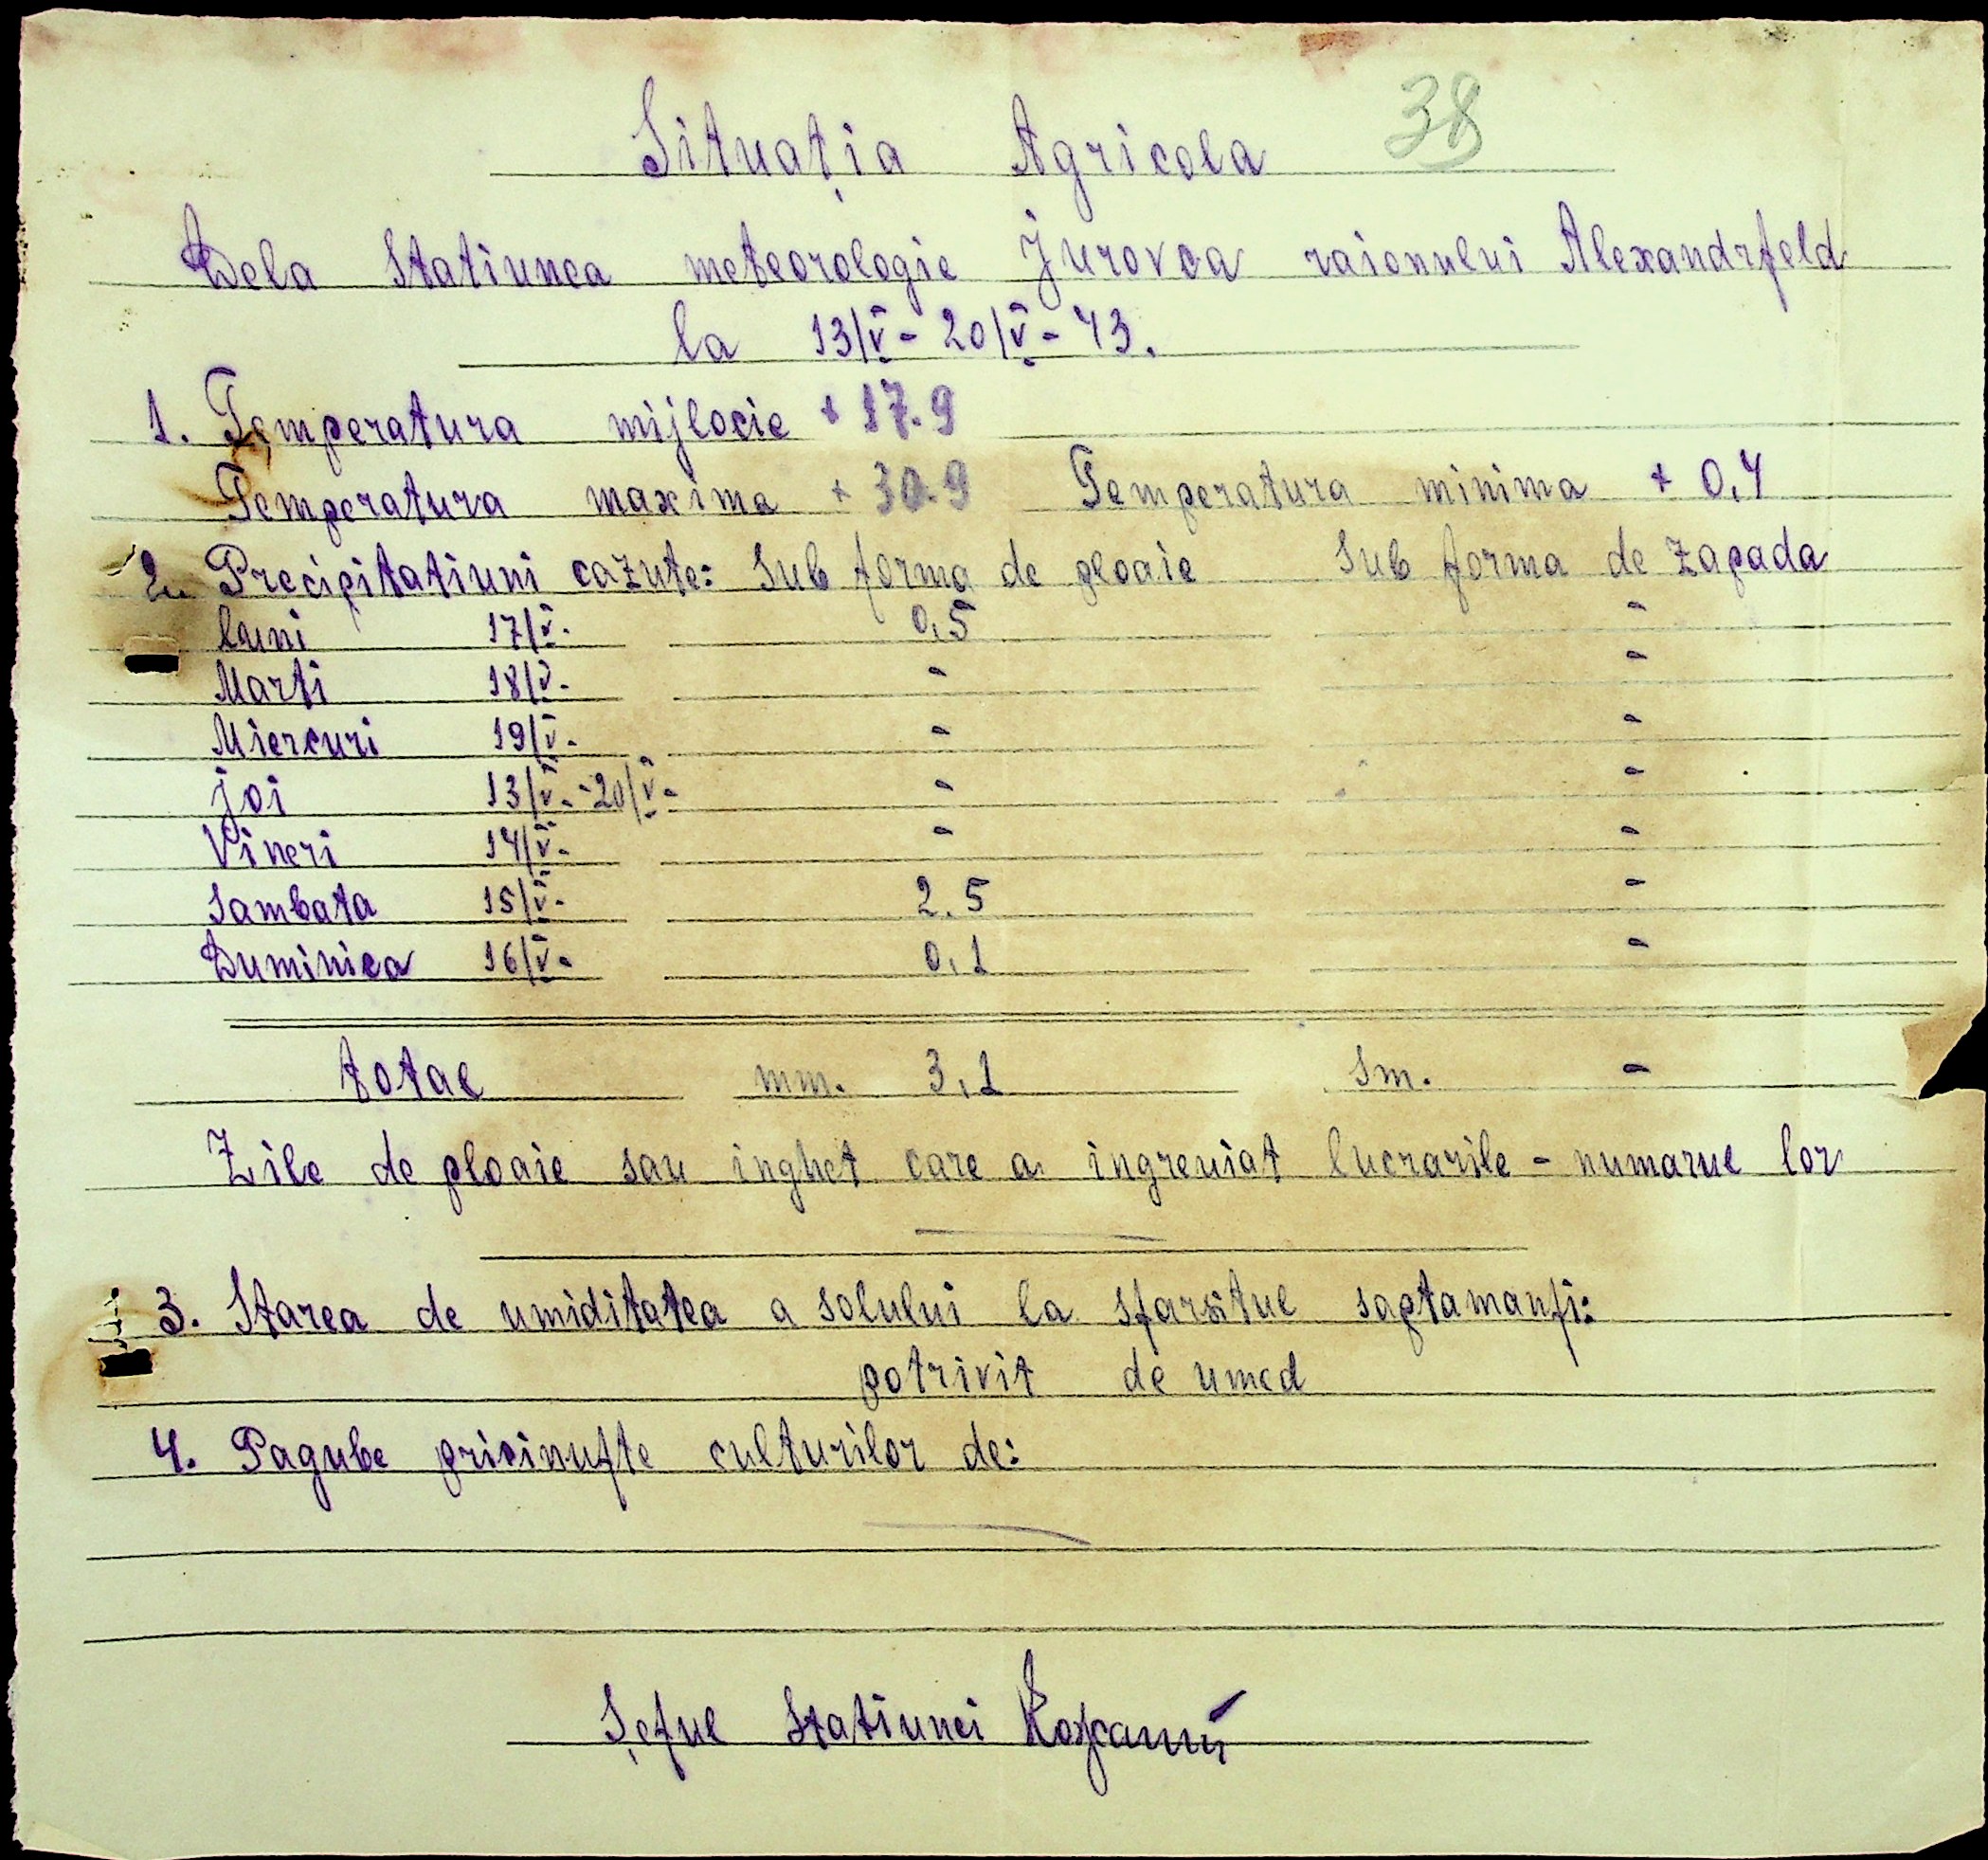 38
Situația Agricola
Dela Statiunea meteorologie Jurovca raionului Alexandrfeld
la 13/V- 20/V- 43.
1. Temperatura mijlocie + 17.9
Temperatura maxima + 30.9 Temperatura minima + 0,4
2. Precipitatiuni cazute: Sub forma de ploaie Sub forma de Zapada
Luni 17/V. 0,5 -
Marti 18/V- - -
Miercuri 19/V- - -
joi 13/V.-20/V- - -
Vineri 14/V- - -
Sambata 15/V- 2.5 -
Duminica 16/V- 0,1 -
total mm. 3,1 Sm. -
Zile de ploaie sau inghet care a ingreuiat lucrarile - numarul lor
3. Starea de umiditatea a solului la sfarsitul saptamanți:
potrivit de umed
4. Pagube pricinuțte culturilor de:
Șeful Statiunei